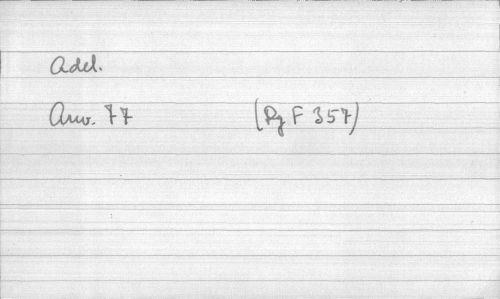 Adel.
Anw. 77 (Rg F 357)